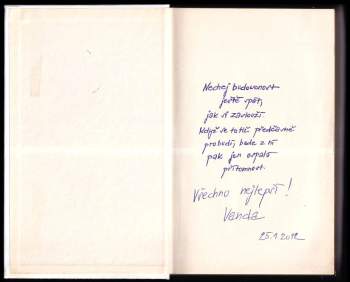 Nechej budoucnost
ještě spát,
jak si zaslouží.
Když se totiž předčasně
probudí, bude z ní
pak jen ospalá
přítomnost.
Všechno nejlepší!
Vanda
25.1.2012